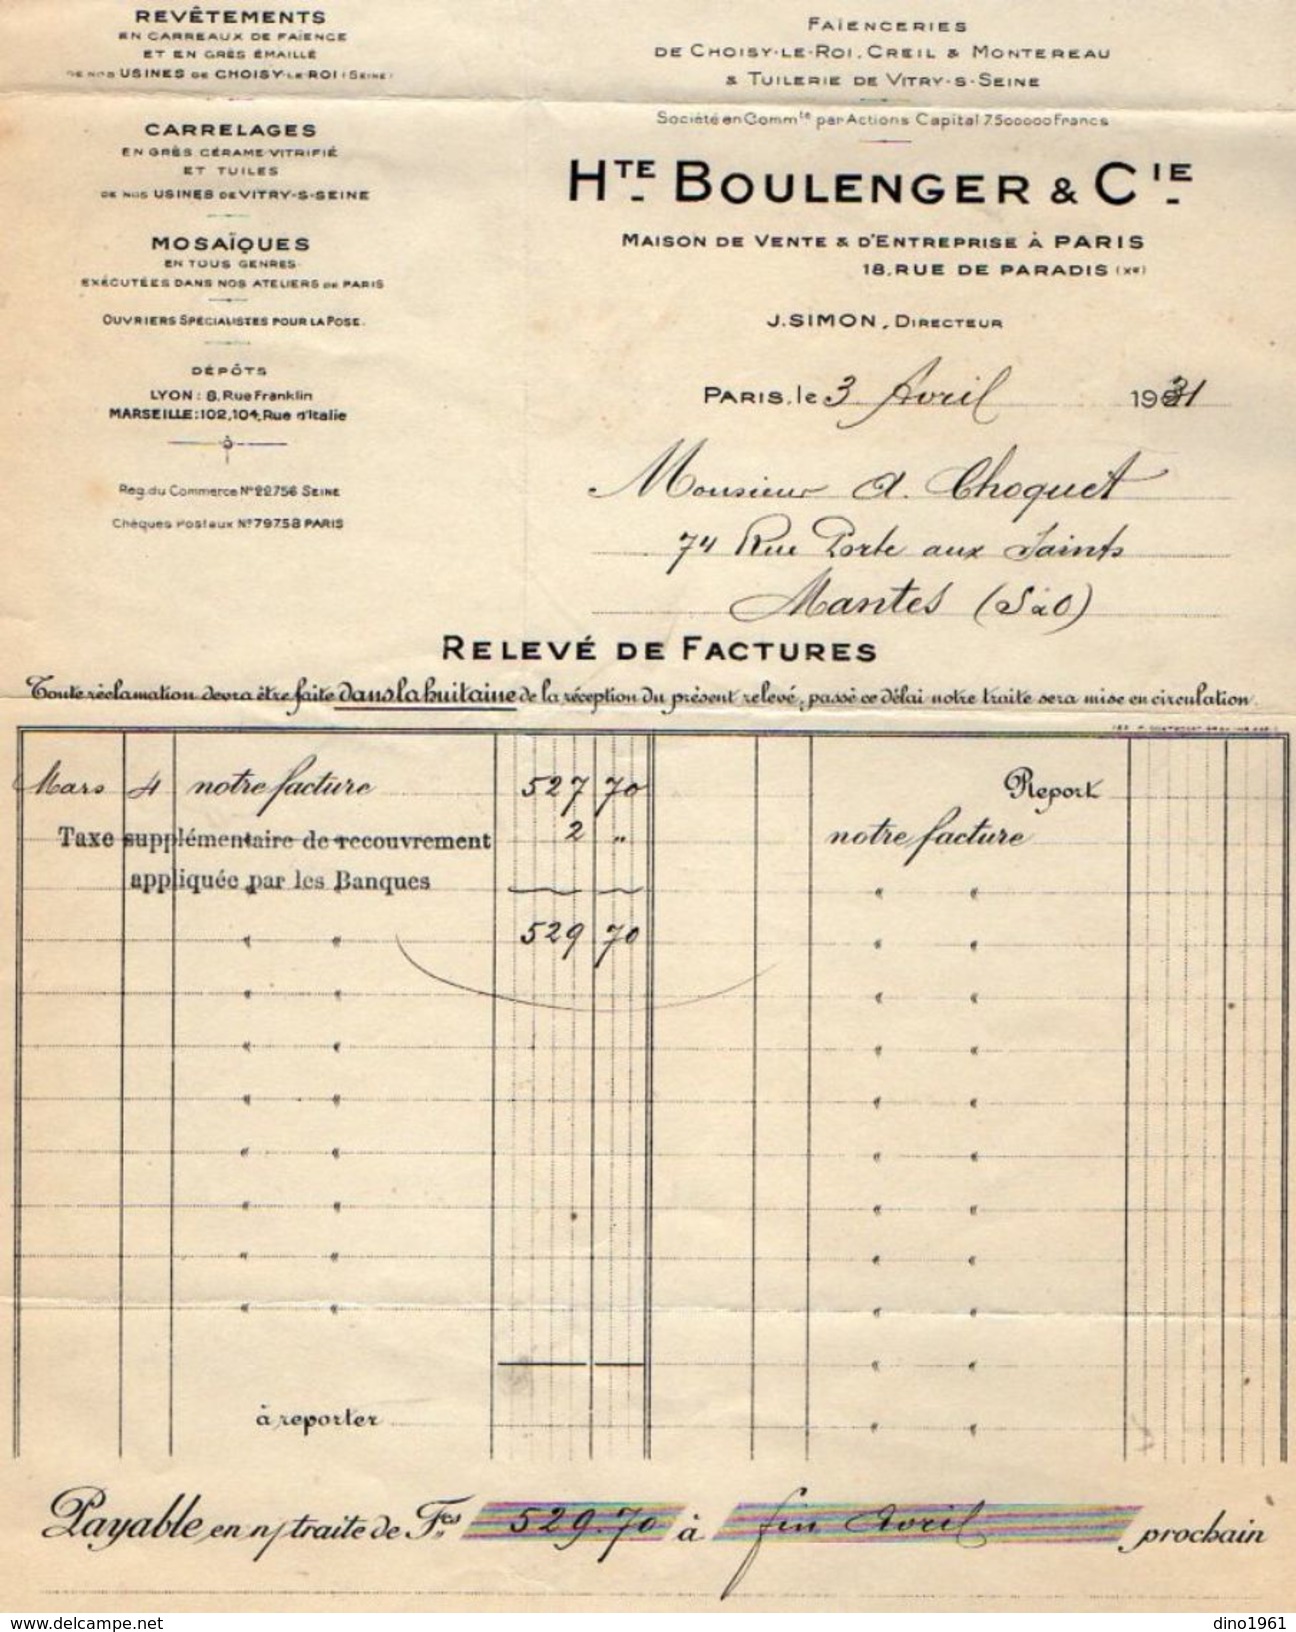 REVÊTEMENTS
EN CARREAUX DE FAÏENCE
ET EN GRÈS ÉMAILLÉ
DE NOS USINES DE CHOISY-LE-ROI (SEINE)
CARRELAGES
EN GRÈS CÉRAME VITRIFIÉ
ET TUILES
DE NOS USINES DE VITRY-S-SEINE
MOSAÏQUES
EN TOUS GENRES
EXÉCUTÉES DANS NOS ATELIERS DE PARIS
OUVRIERS SPÉCIALISTES POUR LA POSE.
DÉPÔTS
LYON : 8, Rue Franklin
MARSEILLE : 102, 104, Rue d'Italie
Reg. du Commerce Nº 22756 SEINE
Chèques Postaux Nº 79758 PARIS
FAÏENCERIES
DE CHOISY-LE-ROI, CREIL & MONTEREAU
& TUILERIE DE VITRY-S-SEINE
Société en Commte par Actions Capital 7500000 Francs
HTE BOULENGER & CIE
MAISON DE VENTE & D'ENTREPRISE À PARIS
18, RUE DE PARADIS (Xe)
J. SIMON, DIRECTEUR
PARIS, le 3 Avril 1931
Monsieur A. Choquet
74 Rue Porte aux Saints
Mantes (S & O)
RELEVÉ DE FACTURES
Toute réclamation devra être faite dans la huitaine de la réception du présent relevé, passé ce délai notre traite sera mise en circulation.
Mars 4 notre facture 527 70 Report
Taxe supplémentaire de recouvrement 2 " notre facture
appliquée par les Banques
529 70
à reporter
Payable en n/ traite de Fcs 529.70 à fin Avril prochain
delcampe.net
dino1961